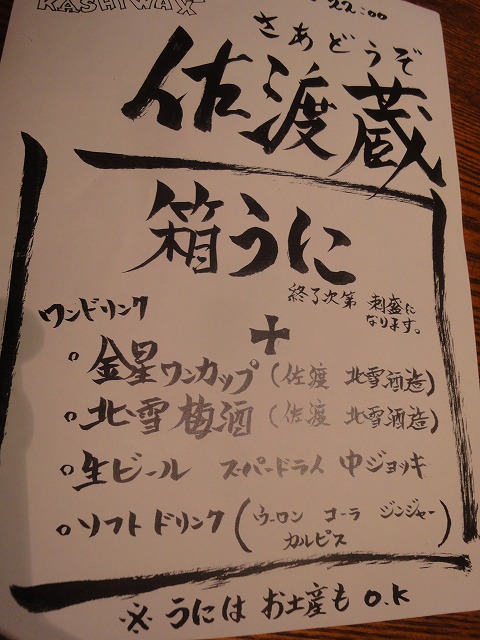 KASHIWAX
22:00
さあどうぞ
佐渡蔵
箱うに
終了次第 刺盛に
なります。
ワンドリンク
+
○金星ワンカップ(佐渡 北雪酒造)
○北雪梅酒(佐渡 北雪酒造)
○生ビール スーパードライ 中ジョッキ
○ソフトドリンク(ウーロン コーラ ジンジャー
カルピス)
※うにはお土産もO.K